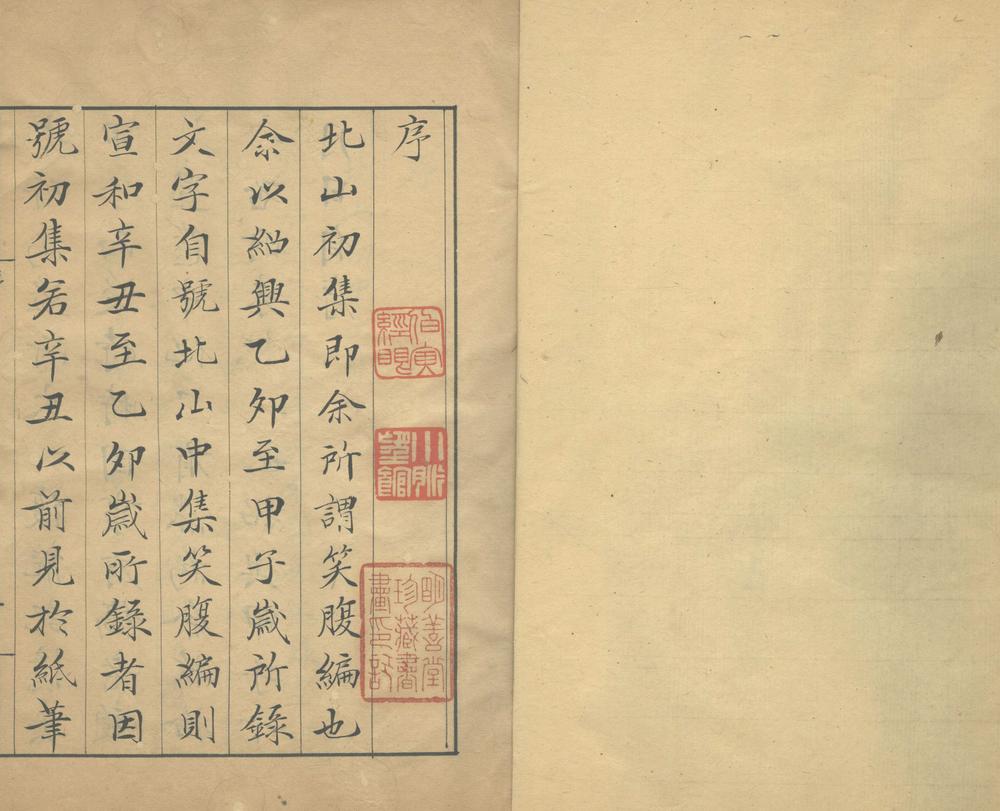 序
北山初集即余所謂笑腹編也
余以紹興乙卯至甲子歲所錄
文字自號北山中集笑腹編則
宣和辛丑至乙卯歲所錄者因
號初集若辛丑以前見於紙筆
伯寅經眼
明善堂珍藏書畫印記